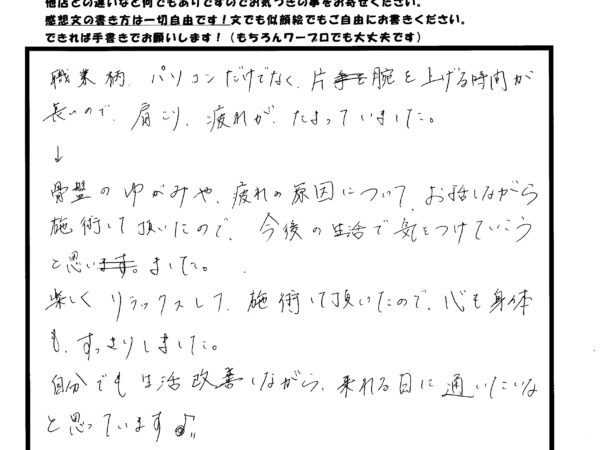 他店との違いなど何でもありですのでお気づきの事をお寄せください。
感想文の書き方は一切自由です！文でも似顔絵でもご自由にお書きください。
できれば手書きでお願いします！（もちろんワープロでも大丈夫です）
職業柄、パソコンだけでなく、片腕を上げる時間が
長いので、肩こり、疲れが、たまっていました。
↓
骨盤のゆがみや、疲れの原因について、お話しながら
施術して頂いたので、今後の生活で気をつけていこう
と思いました。
楽しくリラックスして、施術して頂いたので、心も身体
も、すっきりしました。
自分でも生活改善しながら、来れる日に通いたいな
と思っています♪